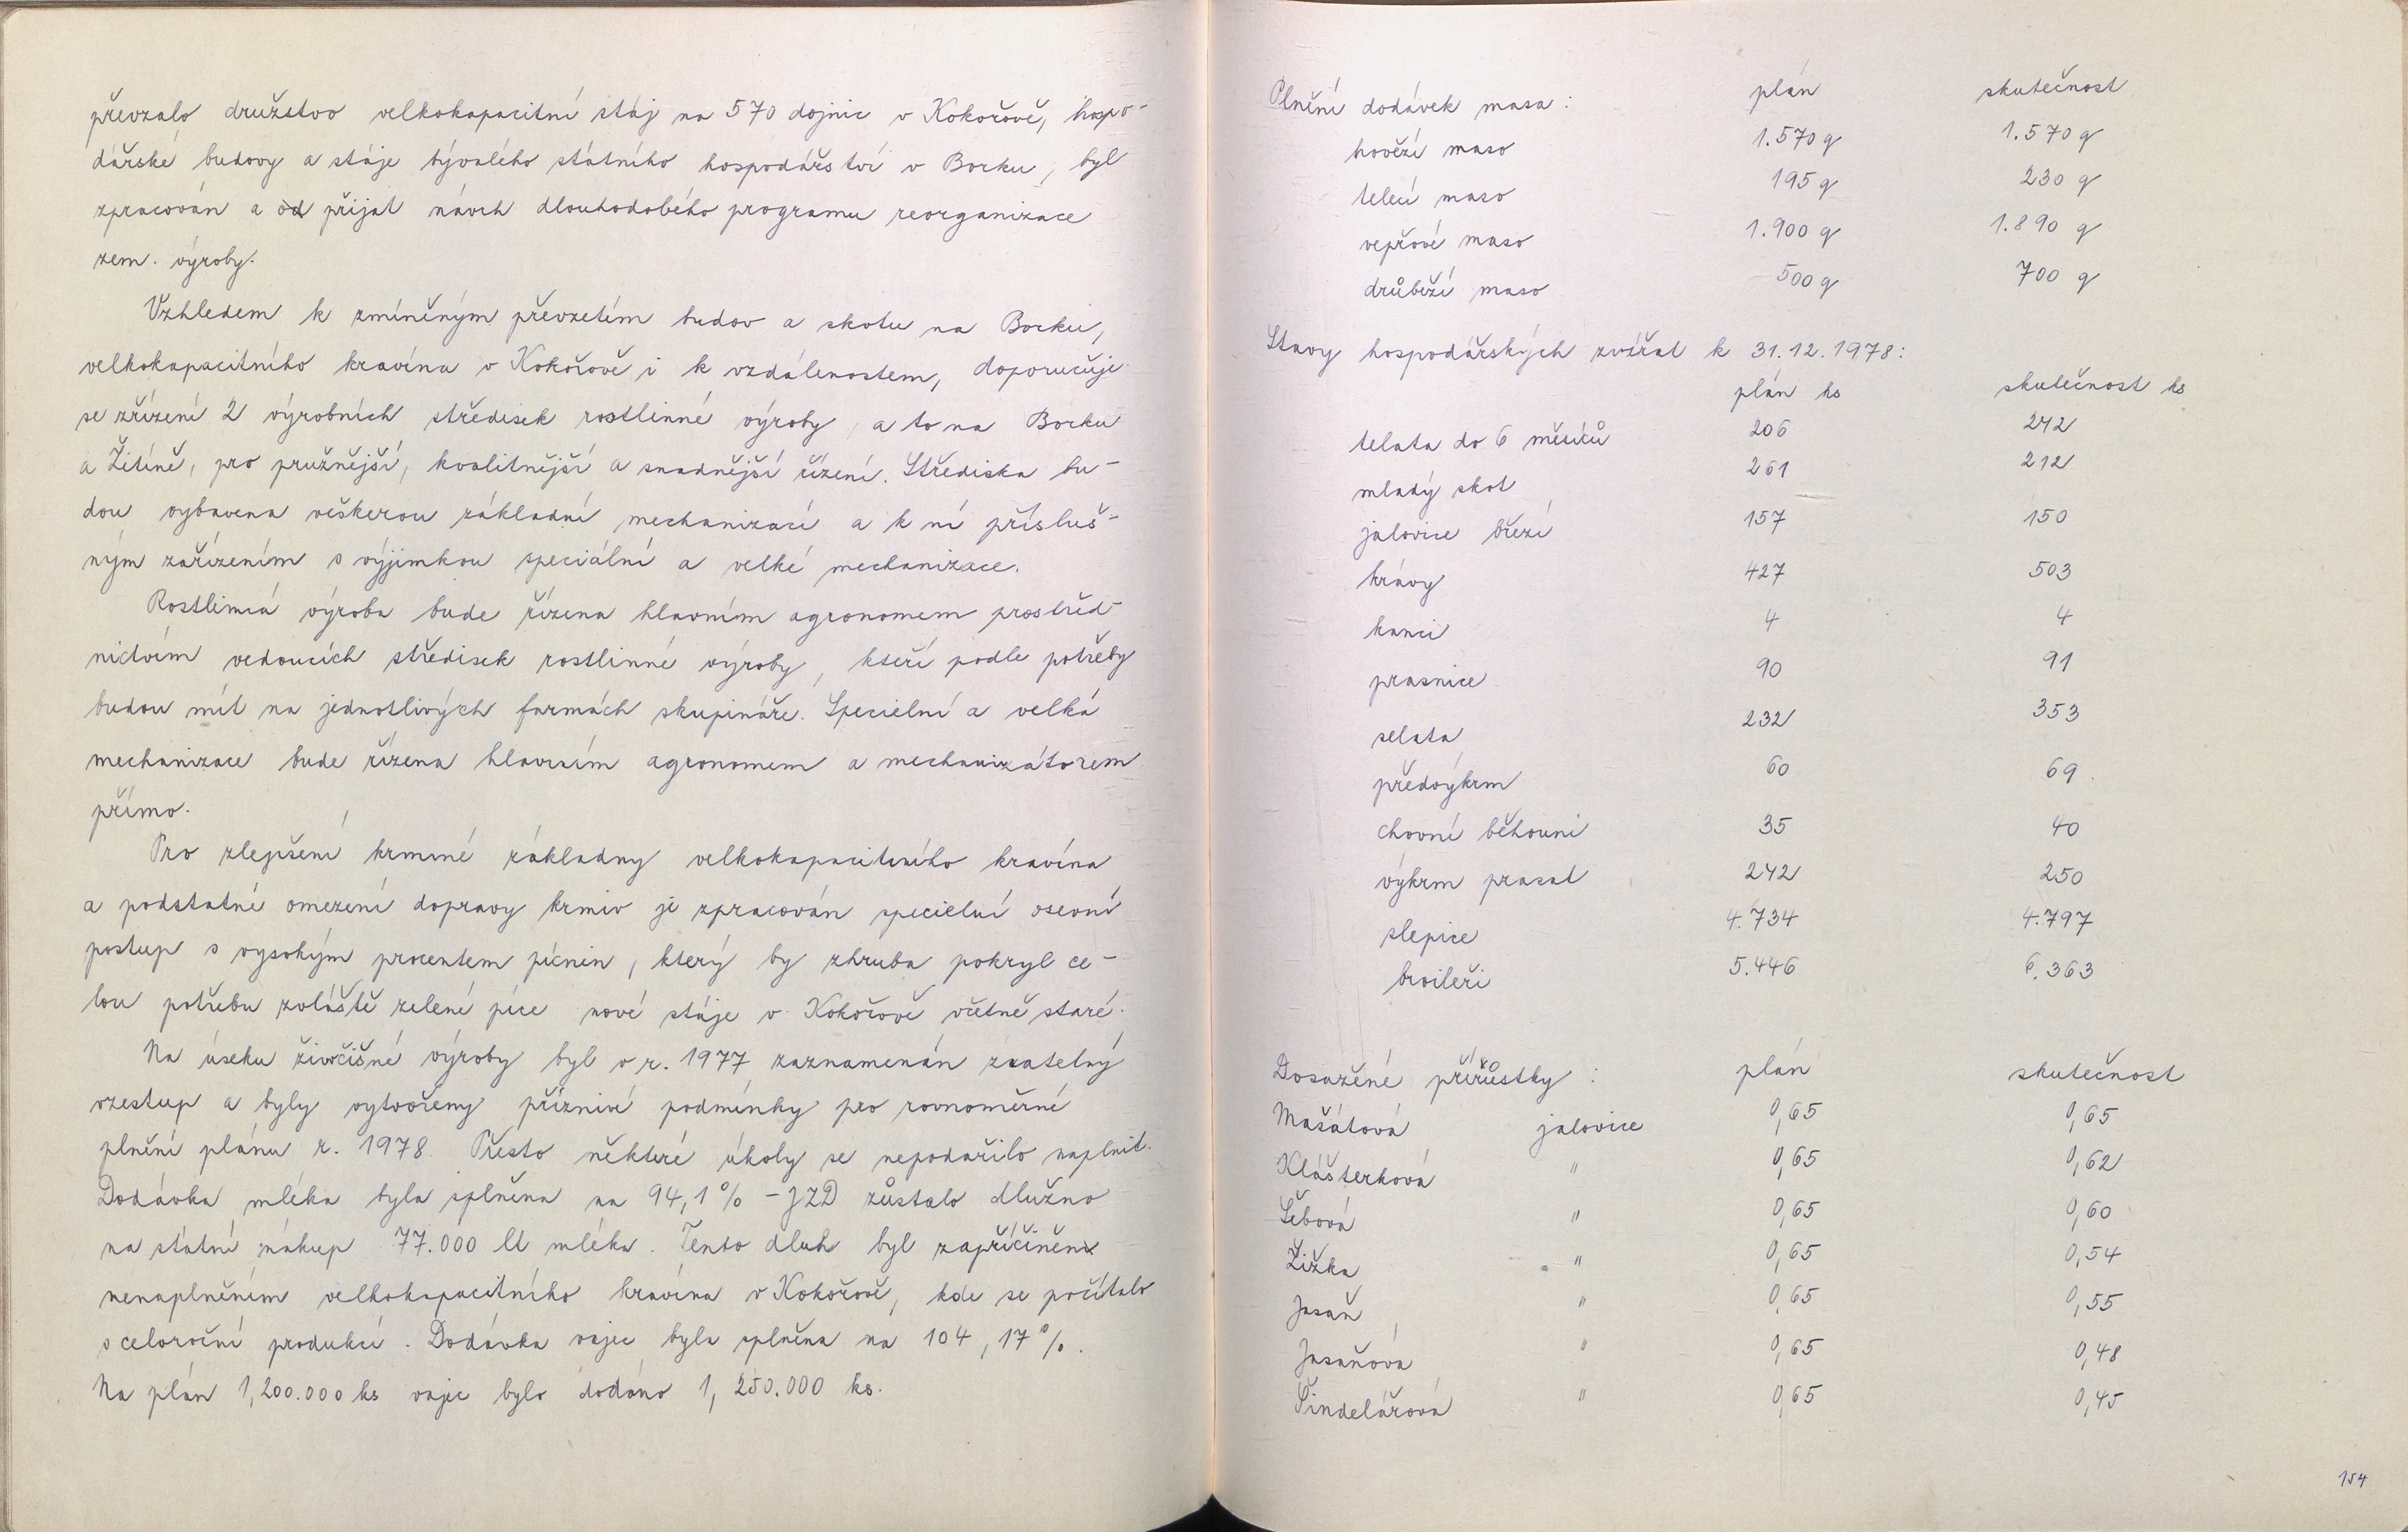 převzalo družstvo velkokapacitní stáj na 570 dojnic v Kokořově, hospo-
dářské budovy a stáje bývalého státního hospodářství v Borku, byl
zpracován a od přijat návrh dlouhodobého programu reorganizace
zem. výroby.
Vzhledem k zmíněným převzetím budov a skotu na Borku,
velkokapacitního kravína v Kokořově i k vzdálenostem, doporučuje
se zřízení 2 výrobních středisek rostlinné výroby, a to na Borku
a Žitíně, pro pružnější, kvalitnější a snadnější řízení. Střediska bu-
dou vybavena veškerou základní mechanizací a k ní přísluš-
ným zařízením s výjimkou speciální a velké mechanizace.
Rostlinná výroba bude řízena hlavním agronomem prostřed-
nictvím vedoucích středisek rostlinné výroby, kteří podle potřeby
budou mít na jednotlivých farmách skupináře. Specielní a velká
mechanizace bude řízena hlavním agronomem a mechanizátorem
přímo.
Pro zlepšení krmné základny velkokapacitního kravína
a podstatné omezení dopravy krmiv je zpracován specielní osevní
postup s vysokým procentem pícnin, který by zhruba pokryl ce-
lou potřebu zvláště zelené píce nové stáje v Kokořově včetně staré.
Na úseku živočišné výroby byl v r. 1977 zaznamenán znatelný
vzestup a byly vytvořeny příznivé podmínky pro rovnoměrné
plnění plánu r. 1978. Přesto některé úkoly se nepodařilo naplnit.
Dodávka mléka byla splněna na 94,1 % - JZD zůstalo dlužno
na státní nákup 77.000 lt mléka. Tento dluh byl zapříčiněn
nenaplněním velkokapacitního kravína v Kokořově, kde se počítalo
s celoroční produkcí. Dodávka vajec byla splněna na 104,17 %.
Na plán 1,200.000 ks vajec bylo dodáno 1,250.000 ks.
Plnění dodávek masa: plán skutečnost
hovězí maso 1.570 q 1.570 q
telecí maso 195 q 230 q
vepřové maso 1.900 q 1.890 q
drůbeží maso 500 q 700 q
Stavy hospodářských zvířat k 31.12.1978:
plán ks skutečnost ks
telata do 6 měsíců 206 242
mladý skot 261 212
jalovice březí 157 150
krávy 427 503
kanci 4 4
prasnice 90 91
selata 232 353
předvýkrm 60 69
chovní běhouni 35 40
výkrm prasat 242 250
slepice 4.734 4.797
broileři 5.446 6.363
Dosažené přírůstky: plán skutečnost
Mašátová jalovice 0,65 0,65
Klášterková " 0,65 0,62
Šebová " 0,65 0,60
Žižka " 0,65 0,54
Jasaň " 0,65 0,55
Jasaňová " 0,65 0,48
Šindelářová " 0,65 0,45
154